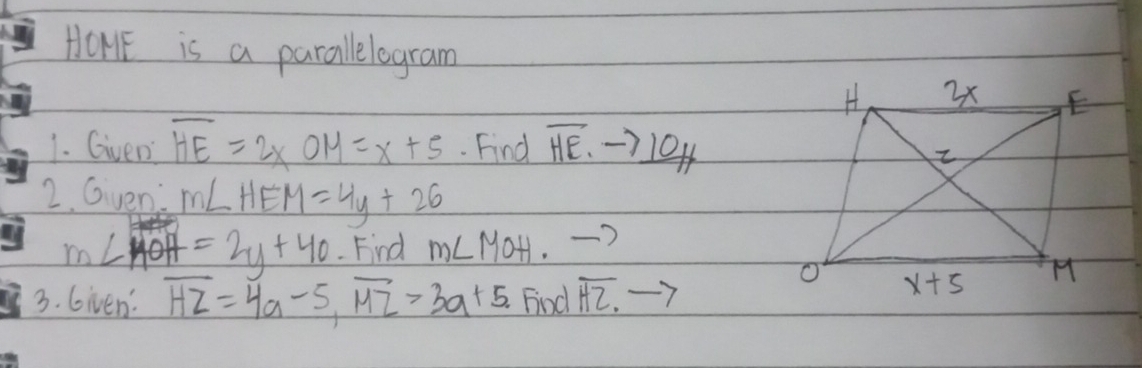 HOME is a parallelogram
1. Given: HE = 2x OM = x + 5. Find HE. → 10
2. Given: m∠HEM = 4y + 26
m∠MOH = 2y + 40. Find m∠MOH. →
3. Given: HZ = 4a - 5, MZ = 3a + 5. Find HZ. →
H 2x E
Z
O x + 5 M